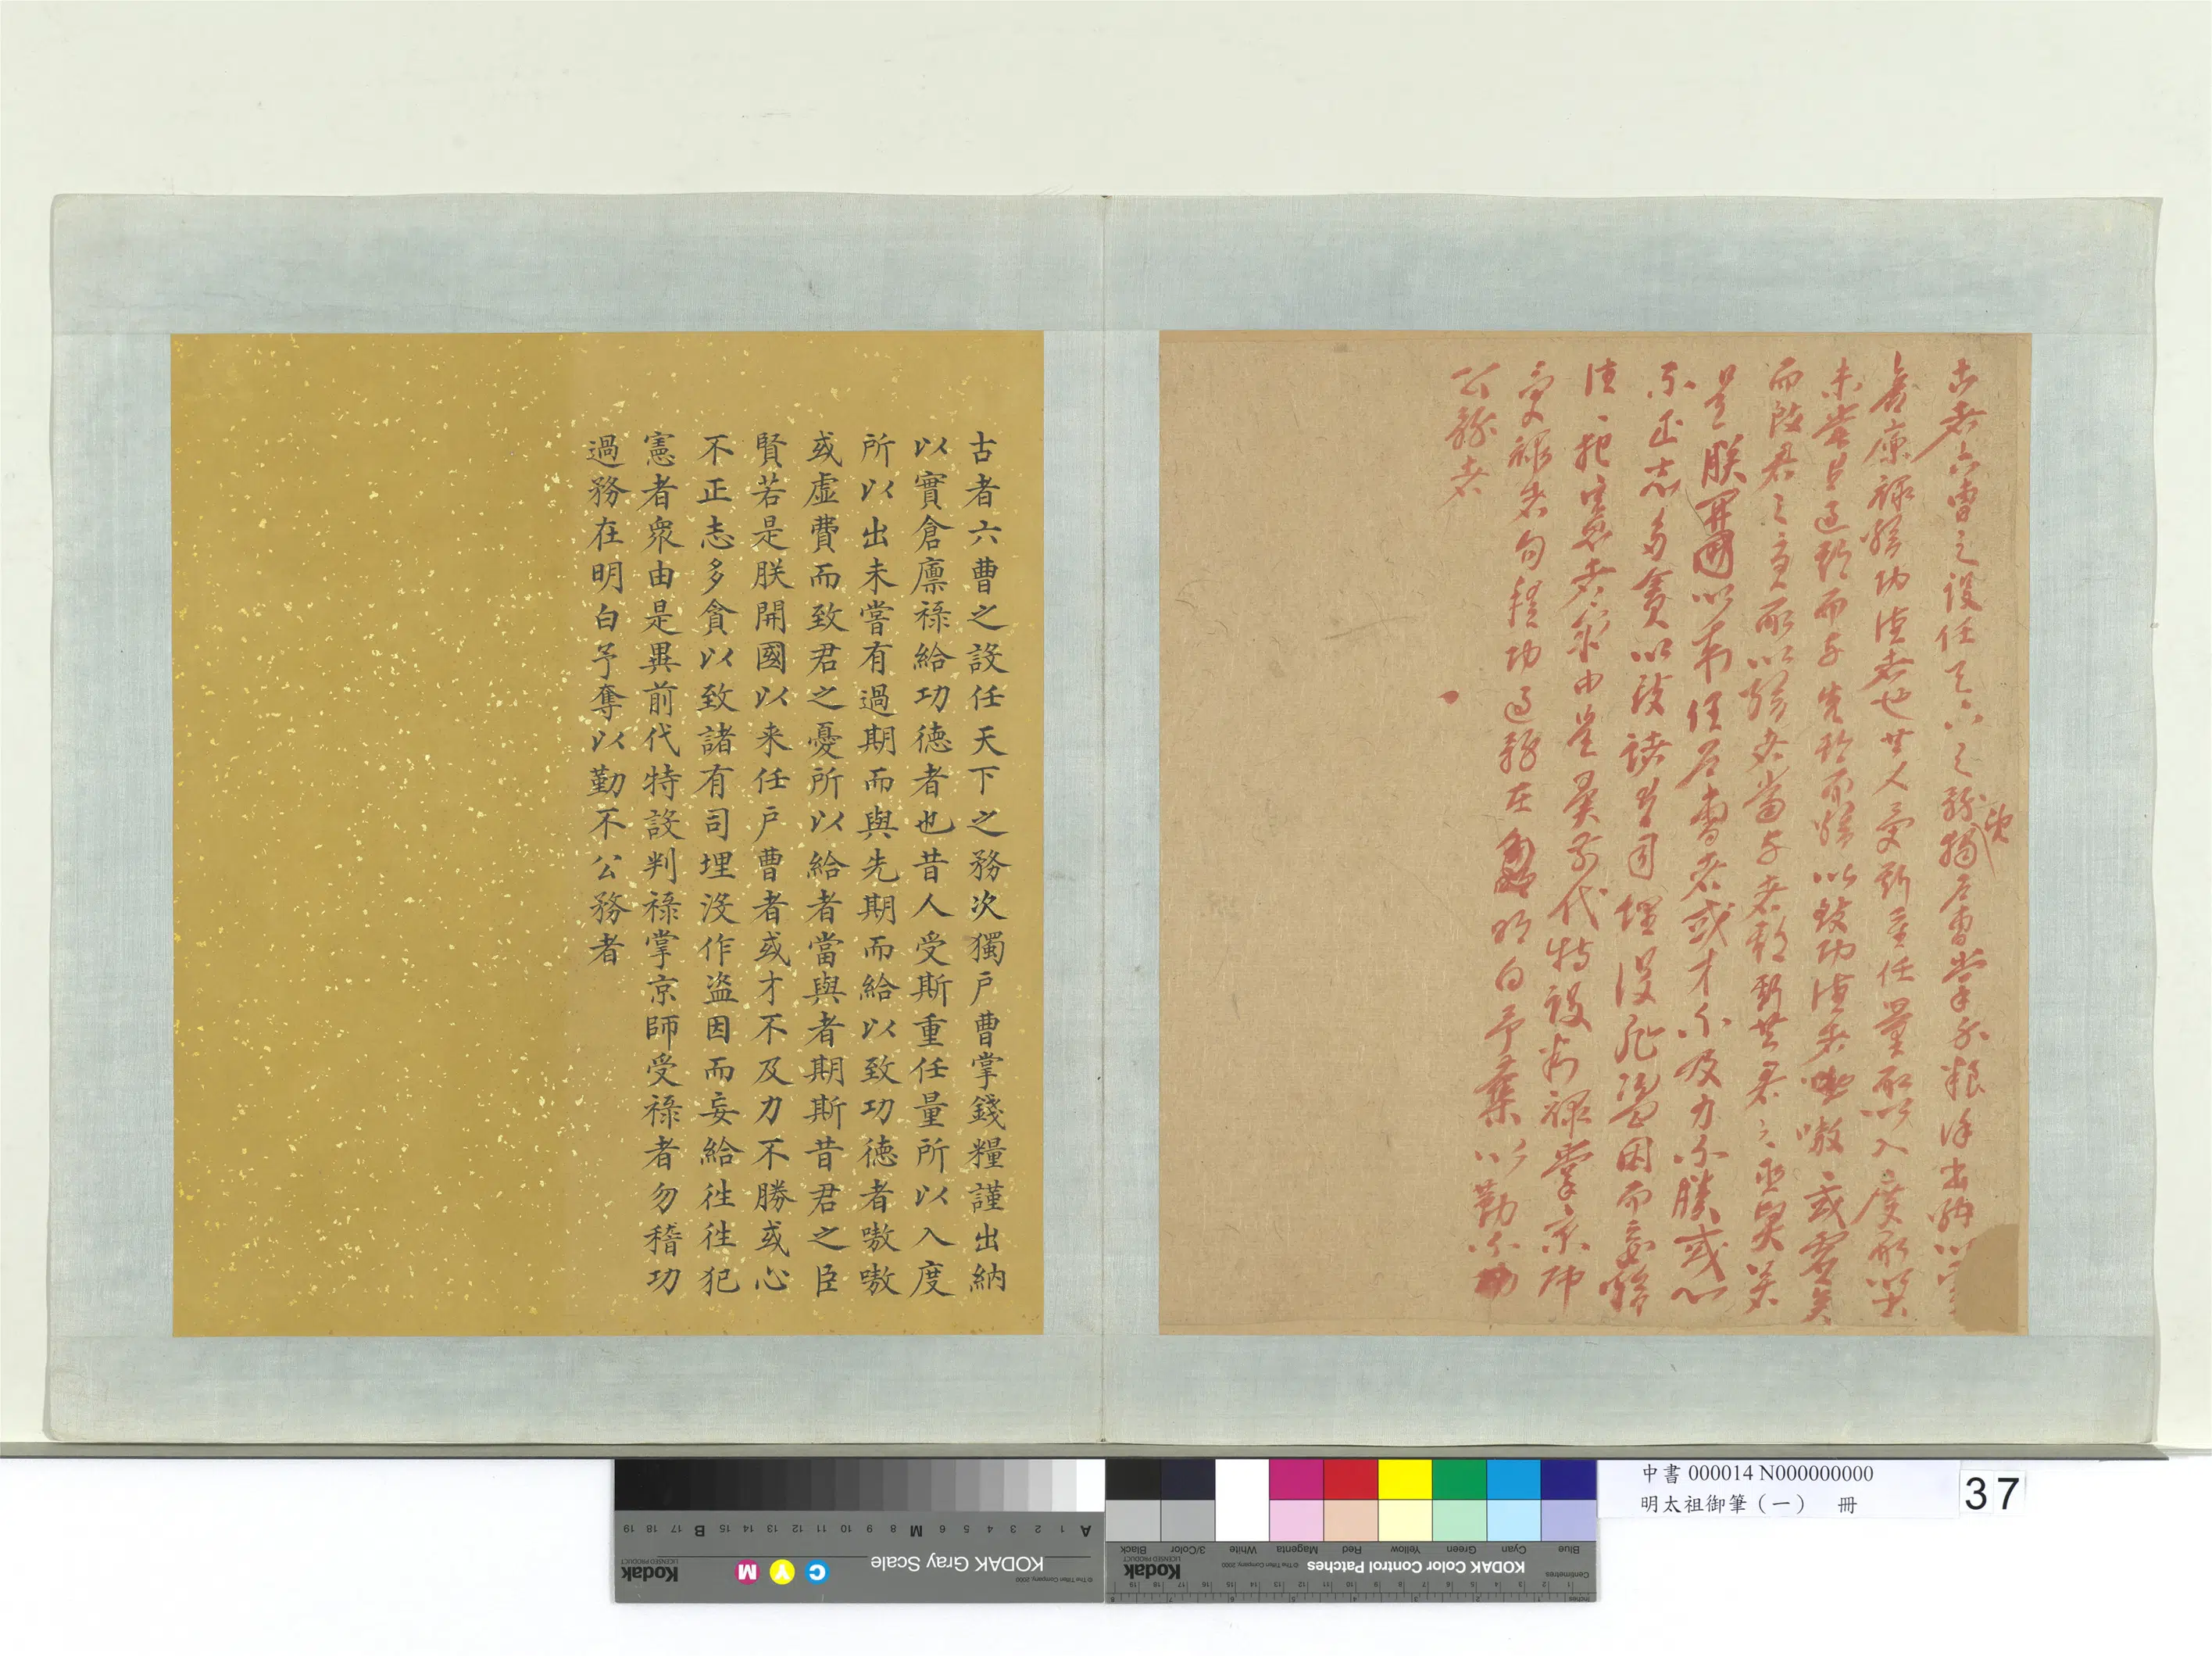 古者六曹之設任天下之務次獨戶曹掌錢糧謹出納以實
倉廩祿給功德者也昔人受斯重任量所以入度所以出
未嘗有過期而與先期而給以致功德者嗷〻或虛費
而致君之憂所以給者當與者期斯昔君之臣賢若
是朕開國以来任戶曹者或才不及力不勝或心
不正志多貪以致諸有司埋沒作盜因而妄給
往〻犯憲者衆由是異前代特設判祿掌京師
受祿者勿稽功過務在明白予奪以勤不
公務者
古者六曹之設任天下之務次獨戶曹掌錢糧謹出納
以實倉廪祿給功德者也昔人受斯重任量所以入度
所以出未嘗有過期而與先期而給以致功德者嗷嗷
或虛費而致君之憂所以給者當與者期斯昔君之臣
賢若是朕開國以来任戶曹者或才不及力不勝或心
不正志多貪以致諸有司埋沒作盜因而妄給徃徃犯
憲者衆由是異前代特設判祿掌京師受祿者勿稽功
過務在明白予奪以勤不公務者
中書 000014 N000000000
明太祖御筆（一） 冊
37
KODAK Gray Scale
Kodak
LICENSED PRODUCT
© The Tiffen Company, 2000
C Y M
A 1 2 3 4 5 6 M 8 9 10 11 12 13 14 15 B 17 18 19
KODAK Color Control Patches
Kodak
LICENSED PRODUCT
© The Tiffen Company, 2000
Blue Cyan Green Yellow Red Magenta White 3/Color Black
Centimetres
Inches